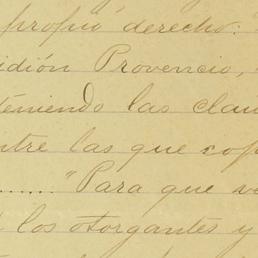 propio derecho:
idión Provencio,
teniendo las clau
ntre las que cop
......"Para que v
los otorgantes y